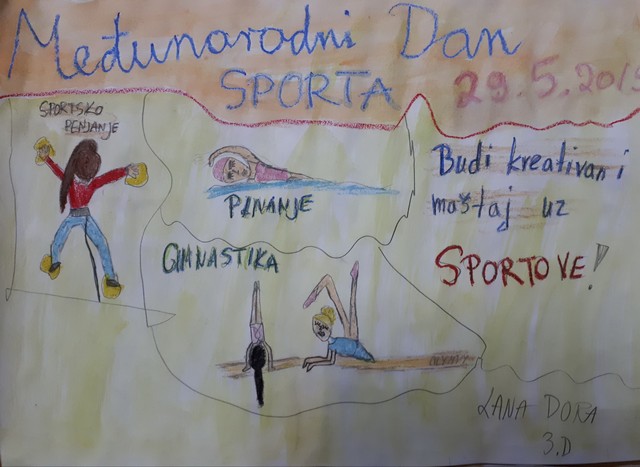 Međunarodni Dan
SPORTA 29.5.2019
SPORTSKO
PENJANJE
PLIVANJE
GIMNASTIKA
Budi kreativan i
maštaj uz
SPORTOVE!
LANA DORA
3.D